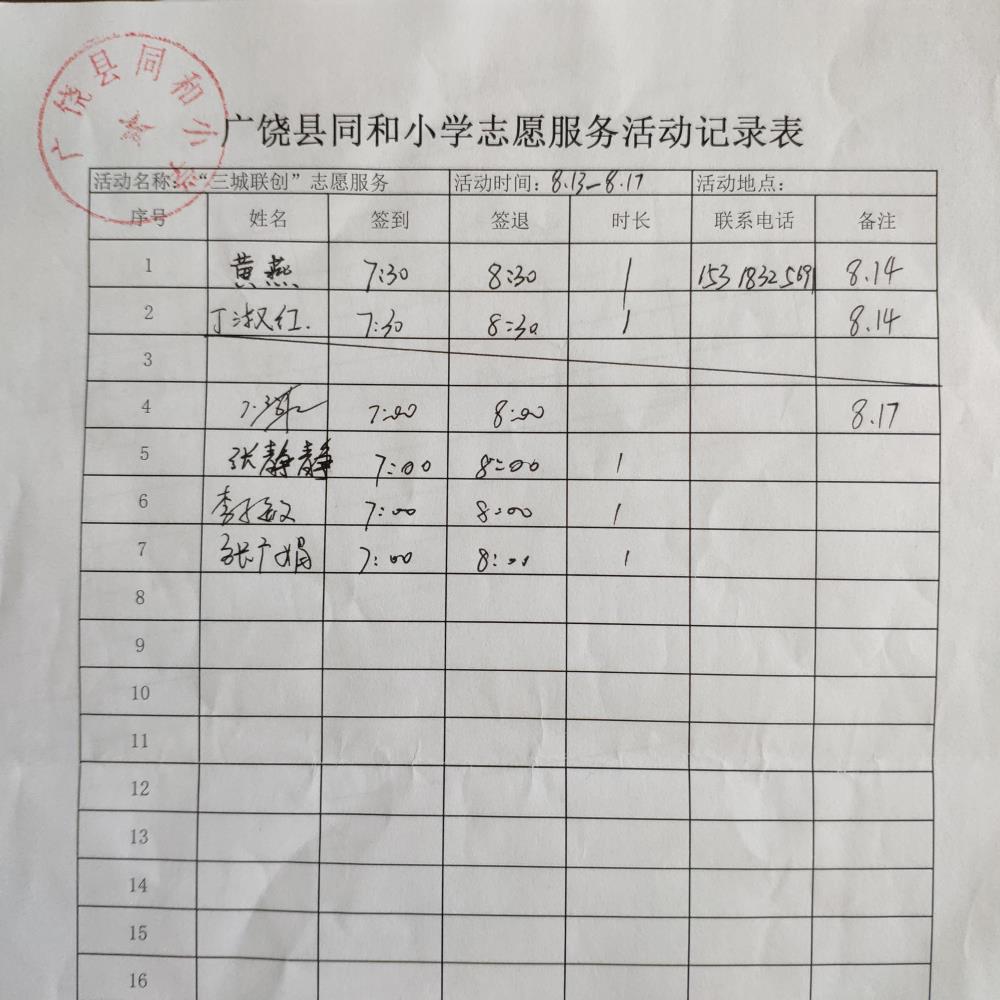 广饶县同和小学
广饶县同和小学志愿服务活动记录表
活动名称：“三城联创”志愿服务 活动时间：8.13—8.17 活动地点：
序号 姓名 签到 签退 时长 联系电话 备注
1 黄燕 7:30 8:30 1 15318325691 8.14
2 丁淑红. 7:30 8:30 1 8.14
3
4 7:00 8:00 8.17
5 张静静 7:00 8:00 1
6 李 敏 7:00 8:00 1
7 张广娟 7:00 8:00 1
8
9
10
11
12
13
14
15
16